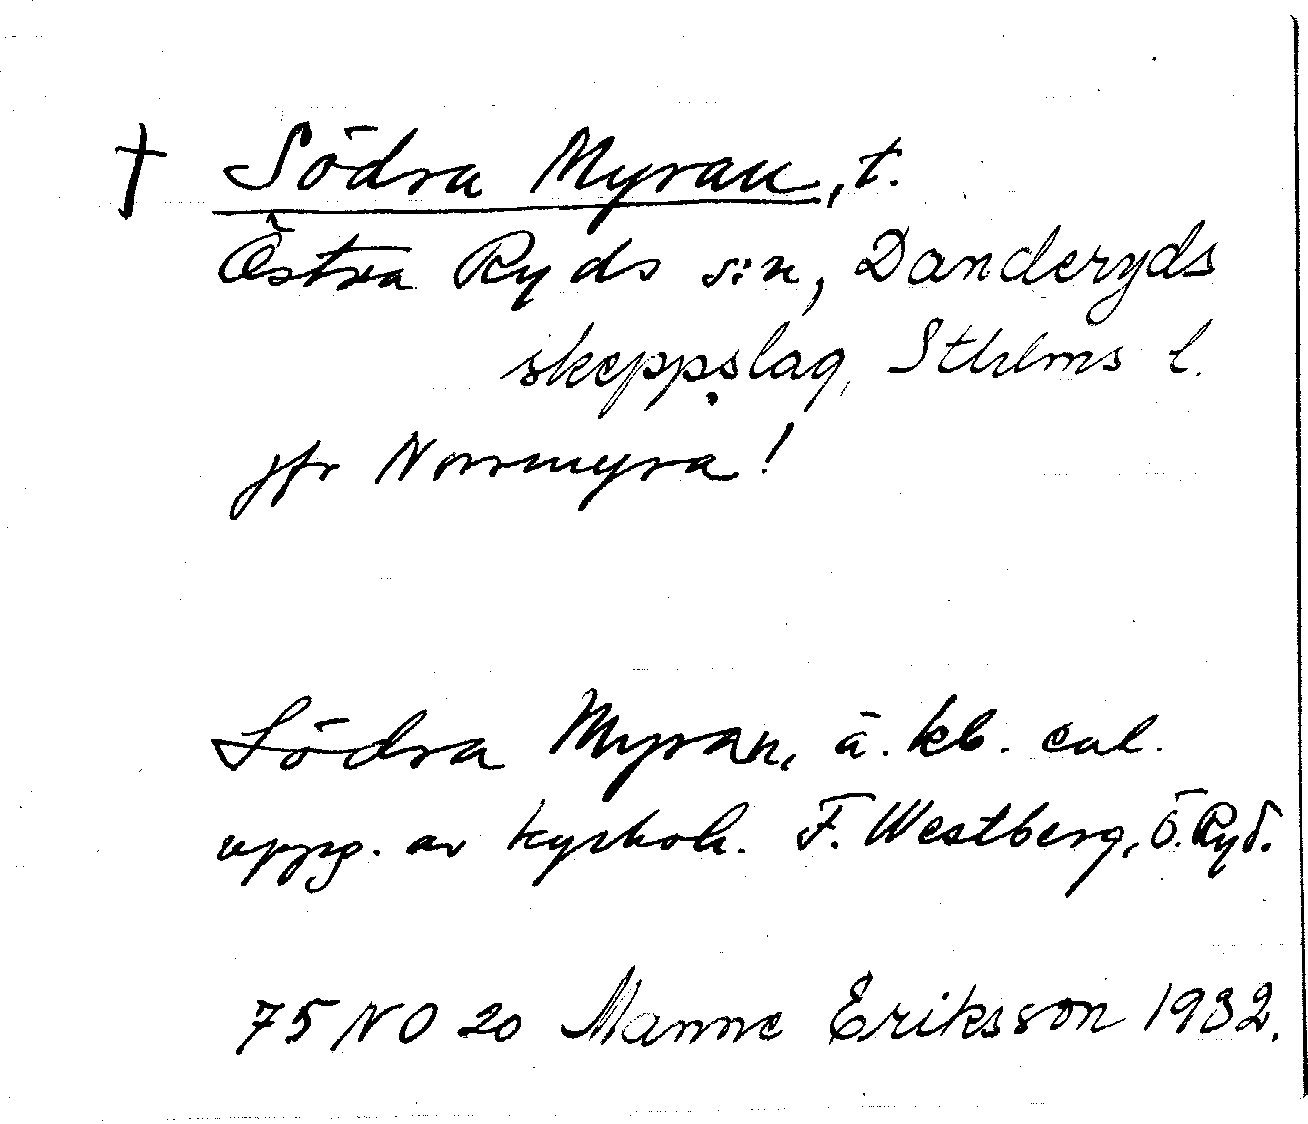 † Södra Myran, t.
Östra Ryds s:n, Danderyds
skeppslag, Sthlms l.
jfr Norrmyra!
Södra Myran, ä. kb. enl.
uppg. av kyrkoh. F. Westberg, Ö. Ryd.
75 NO 20 Manne Eriksson 1932.